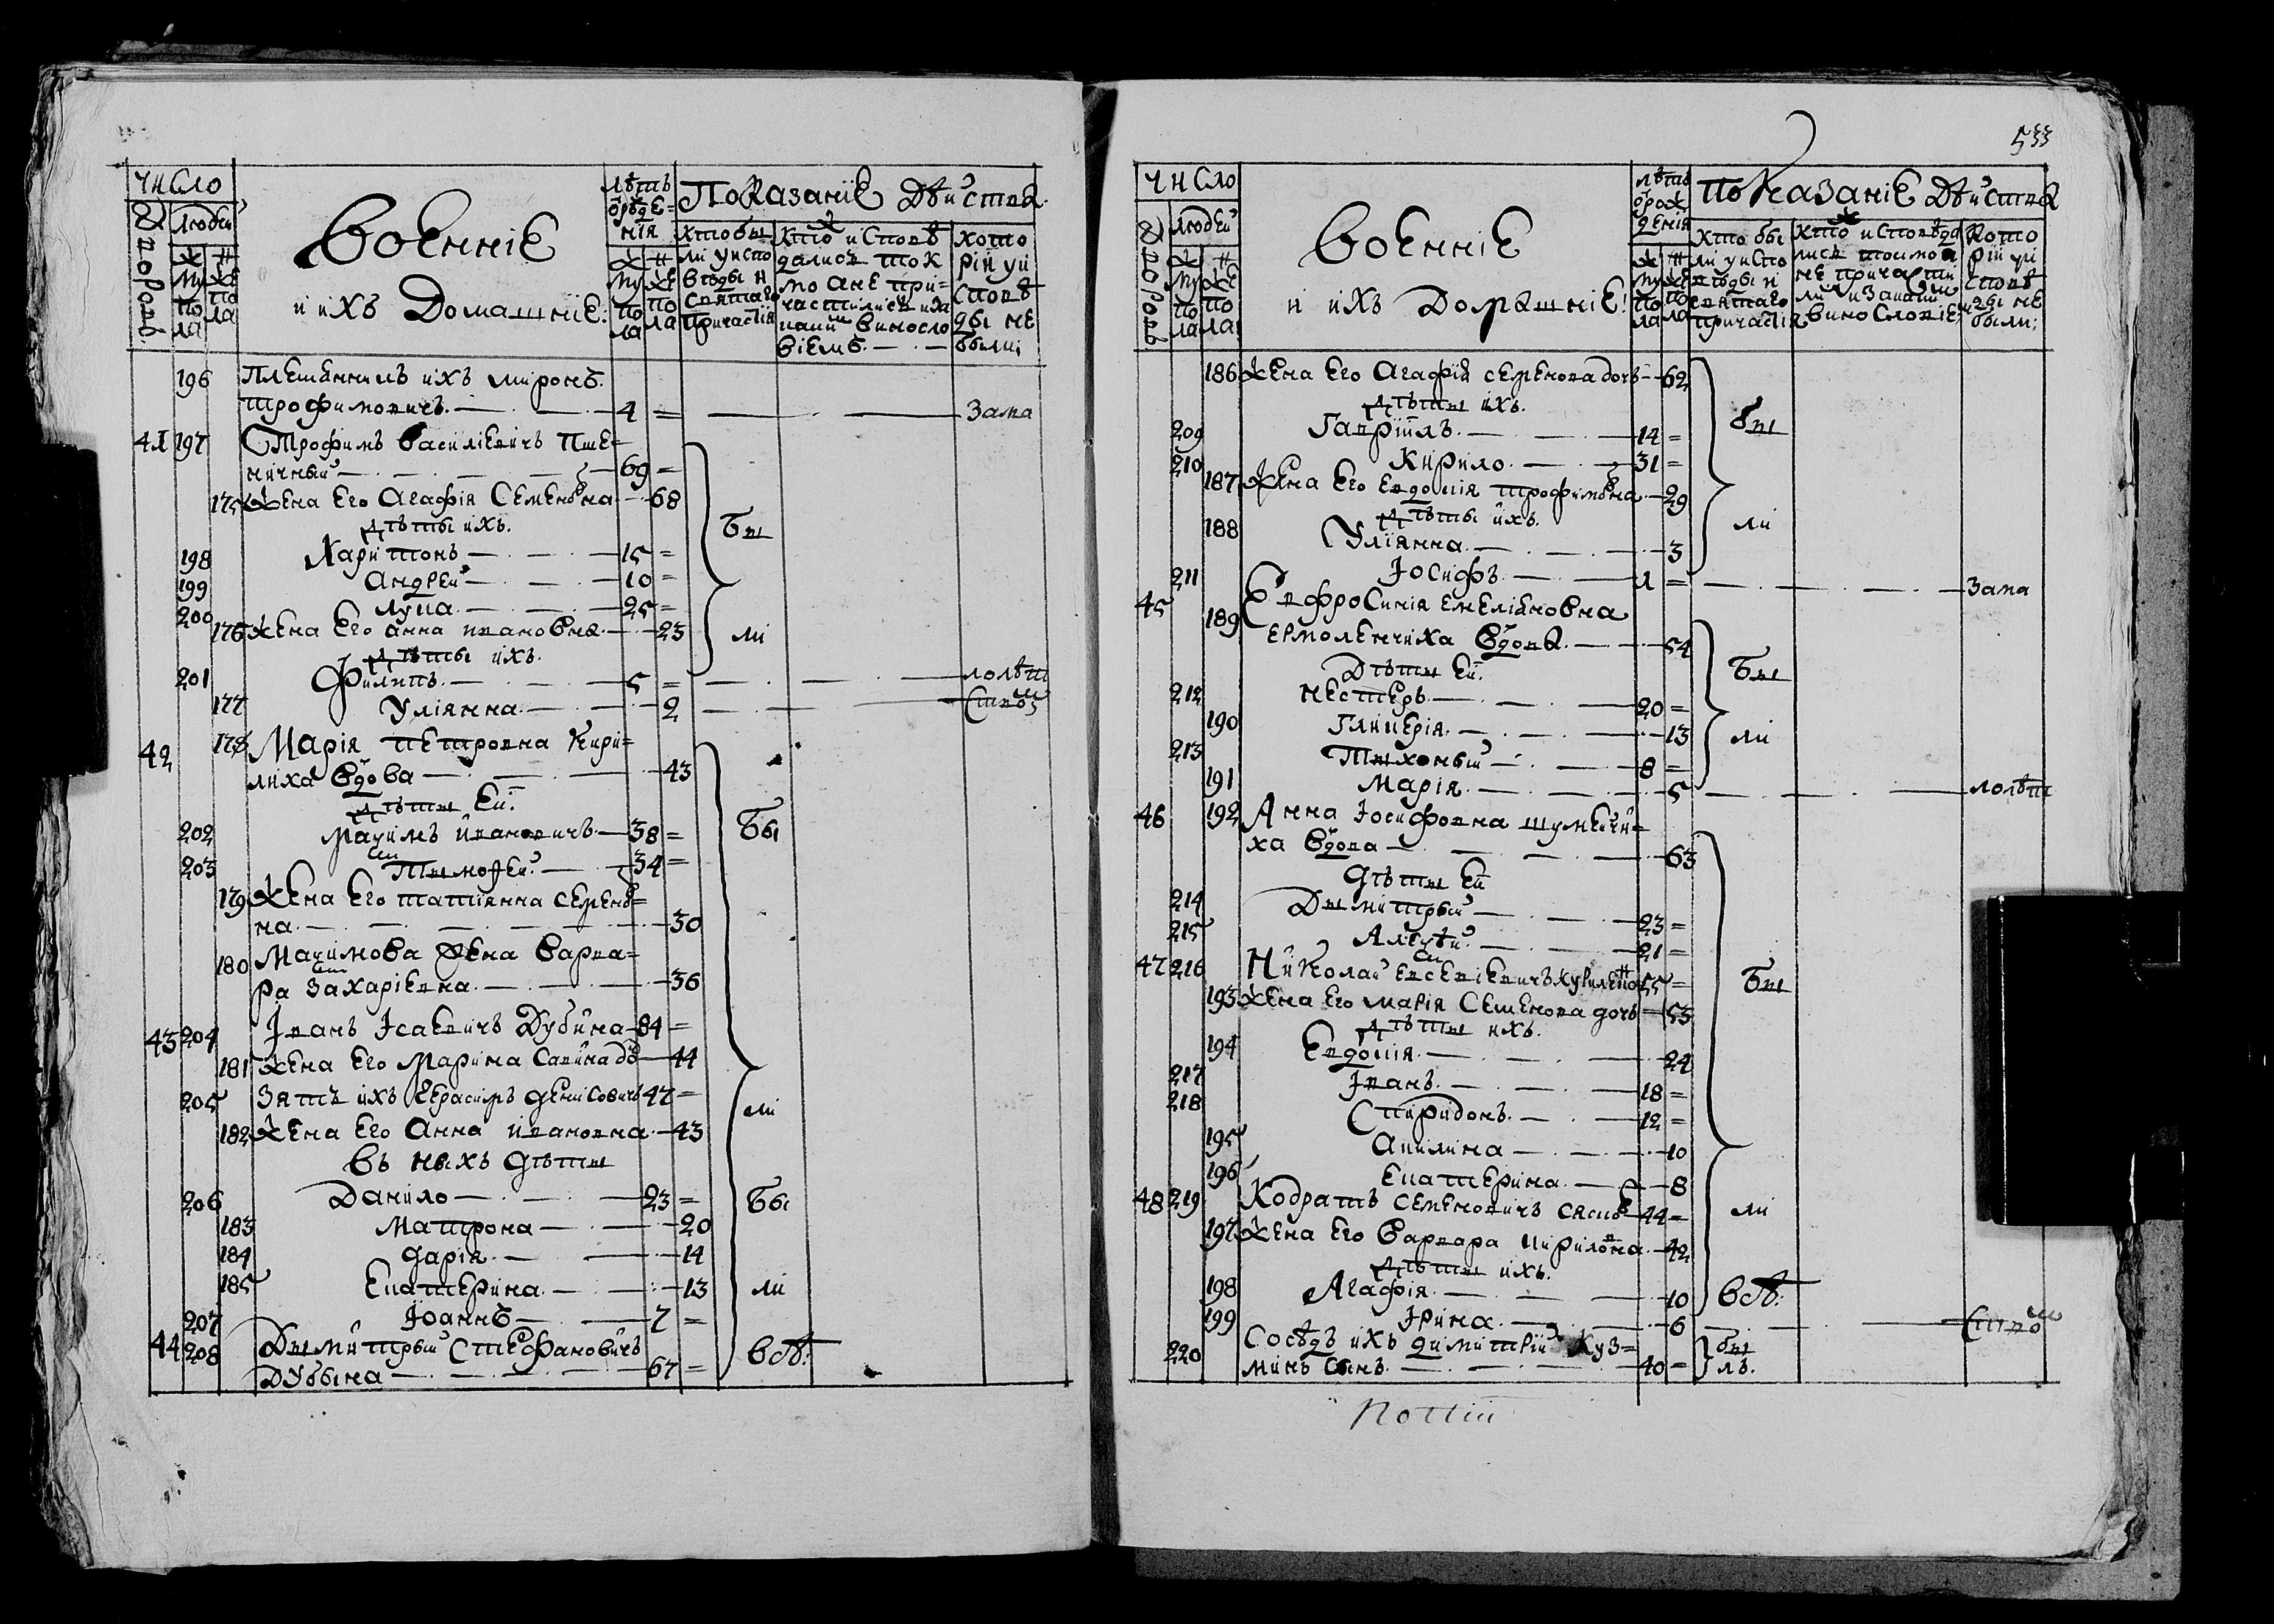 число
Дворовъ
людей
муж пола
жен пола
Военніе
и ихъ Домашніе:
лѣтъ ѿ рождения
муж пола
же пола
Показаніе Дѣйства
Кто были у исповѣды и святаго причастія
Кто исповѣдались токмо а не причастились и за каким винословіемъ
которій у исповѣды не были;
196 Племѣнникъ ихъ миронъ
трофимовичъ 4 = зама
41 197 Строфимъ василіевичъ пше=
ничный 69 =
175 Жена его Агафія Семеновна 68
дѣты ихъ.
198 Харитонъ 15 =
199 андрей 10 =
200 лука 25 =
176 Жена его анна ивановна 23
дѣты ихъ.
201 Филипъ 5 = лолѣт
177 Уліянна 2
42 178 Марія петровна Кири=
лиха вдова 43
дѣты ей.
202 Максимъ ивановичъ 38 =
203 Тимофей 34 =
179 Жена его татіянна семенов=
на 30
180 Максимова жена варва=
ра захаріевна 36
43 204 Іванъ Ісаевичъ Дубина 84 =
181 жена его Марина Савина до 44
205 зять ихъ герасимъ денисовичъ 47 =
182 Жена его Анна ивановна 43
въ ныхъ дѣты
206 Данило 23 =
183 Матрона 20
184 дарія 14
185 Екатерина 13
207 Іоаннъ 7 =
44 208 Дымитрый Стефановичъ
Дубына 67 =
Бы
ли
Бы
ли
Бы
ли
всѣ:
533
число
Дворовъ
людей
муж пола
же пола
Военніе
и ихъ Домашніе:
лѣтъ ѿ рождения
муж пола
же пола
Показаніе Дѣйства
Кто были у исповѣды и святаго причастія
Кто исповѣдались токмо а не причастили и за каким винословіем
Которій у исповѣды не были;
186 Жена его Агафія семенова дочъ 62
дѣты ихъ.
209 Гавріилъ 14 =
210 Кирило 31 =
187 Жена его евдокія трофимовна 29
дѣты ихъ.
188 Уліянна 3
211 Іосифъ 1 = зама
45 189 Евфросинія емеліяновна
ермоленчиха вдова 54
Дѣты ей.
212 нестеръ 20 =
190 Гликерія 13
213 Тыхоный 8 =
191 Марія 5 лолѣт
46 192 Анна Іосифовна шумейчи=
ха вдова 63
дѣты ей
214 Дымитрый 23 =
215 Алексѣй 21 =
47 216 Николай евсевіевичъ 55 =
193 Жена его марія Семенова дочъ 53
дѣты ихъ.
194 Евдокія 24
217 Іванъ 18 =
218 Спиридонъ 12 =
195 Акилина 10
196 Екатерина 8
48 219 Кодратъ семеновичъ 44 =
197 Жена его варвара кириловна 42
дѣты ихъ.
198 Агафія 10
199 Ірина 6
220 Сосѣдъ ихъ димитрій Куз=
минъ синъ 40 =
бы
ли
Бы
ли
Бы
ли
всѣ:
бы
лъ.